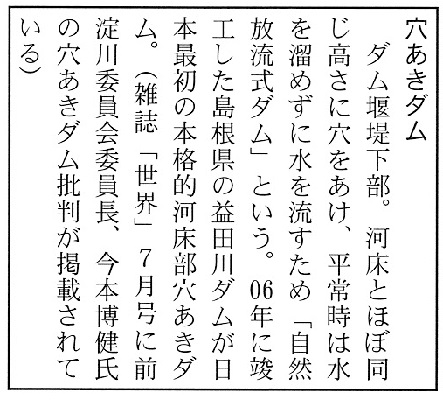 穴あきダム
ダム堰堤下部。河床とほぼ同
じ高さに穴をあけ、平常時は水
を溜めずに水を流すため「自然
放流式ダム」という。06年に竣
工した島根県の益田川ダムが日
本最初の本格的河床部穴あきダ
ム。(雑誌「世界」7月号に前
淀川委員会委員長、今本博健氏
の穴あきダム批判が掲載されて
いる)